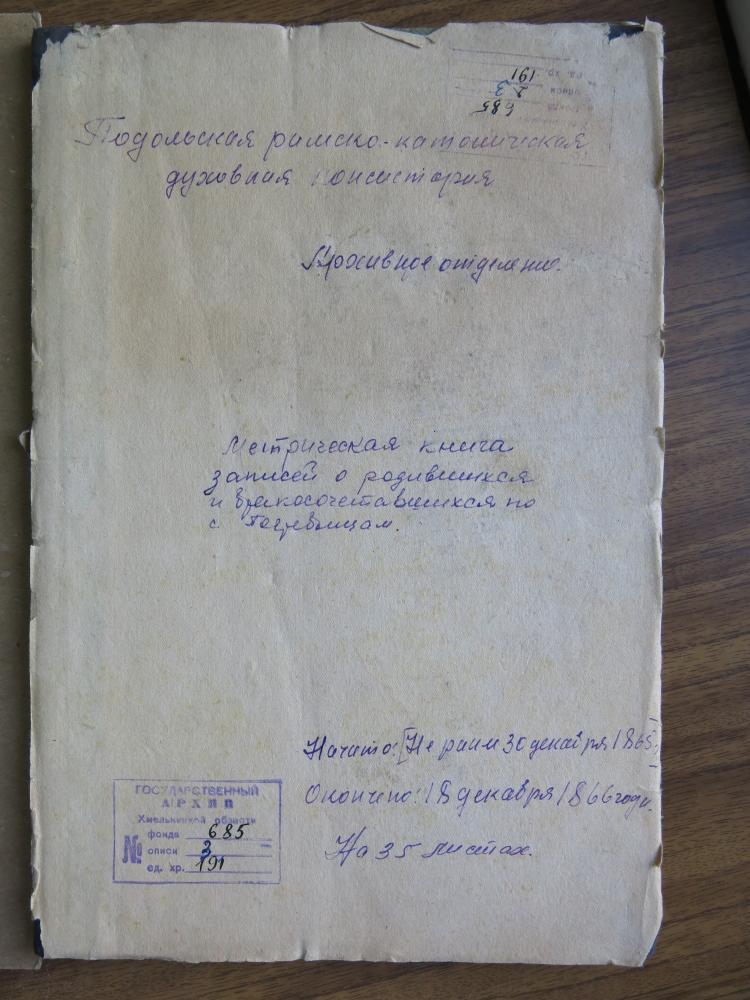 № ед. хр. 191
описи 3
фонда 685
Подольская римско-католическая
духовная консистория
Архивное отделение.
Метрическая книга
записей о родившихся
и бракосочетавшихся по
с.
Начато: [Не ранее 30 декабря 1865]
Окончено: 18 декабря 1866 года.
На 35 листах.
ГОСУДАРСТВЕННЫЙ
АРХИВ
Хмельницкой области
фонда 685
№ описи 3
ед. хр. 191